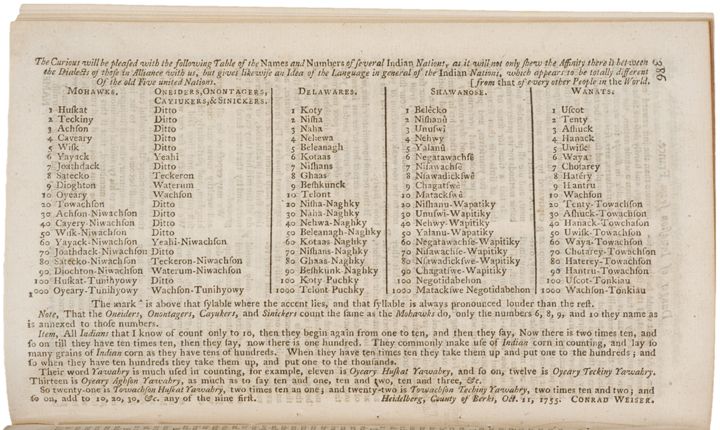 The Curious will be pleaſed with the following Table of the Names and Numbers of ſeveral Indian Nations, as it will not only ſhew the Affinity there is between
the Dialects of thoſe in Alliance with us, but gives likewiſe an Idea of the Language in general of the Indian Nations, which appears to be totally different
Of the old Five united Nations. [from that of every other People in the World.
MOHAWKS. ONEIDERS, ONONTAGERS, CAYIUKERS, & SINICKERS. DELAWARES. SHAWANOSE. WANATS.
1 Huſkat Ditto 1 Koty 1 Belêcko 1 Uſcot
2 Teckiny Ditto 2 Niſha 2 Niſhanû 2 Tenty
3 Achſon Ditto 3 Naha 3 Unuſwî 3 Aſhuck
4 Caveary Ditto 4 Nehewa 4 Nehwy 4 Hanack
5 Wiſk Ditto 5 Beleanagh 5 Yalanû 5 Uwiſk
6 Yayack Yeahi 6 Kotaas 6 Negatawachſê 6 Waya
7 Joathdack Ditto 7 Niſhans 7 Niſawachſê 7 Chotarey
8 Satecko Teckeron 8 Ghaas 8 Nſawadickſwê 8 Hatêry
9 Dioghton Waterum 9 Beſhkunck 9 Chagatſwê 9 Hantru
10 Oyeary Wachſon 10 Telont 10 Matackſwê 10 Wachſon
20 Towachſon Ditto 20 Niſha-Naghky 20 Niſhanu-Wapatiky 20 Tenty-Towachſon
30 Achſon-Niwachſon Ditto 30 Naha-Naghky 30 Unuſwi-Wapitiky 30 Aſhuck-Towachſon
40 Cayery-Niwachſon Ditto 40 Nehwa-Naghky 40 Nehwy-Wapitiky 40 Hanack-Towachſon
50 Wiſk-Niwachſon Ditto 50 Beleanagh-Naghky 50 Yalanu-Wapitiky 50 Uwiſk-Towachſon
60 Yayack-Niwachſon Yeahi-Niwachſon 60 Kotaas-Naghky 60 Negatawachſie-Wapitiky 60 Waya-Towachſon
70 Joathdack-Niwachſon Ditto 70 Niſhans-Naghky 70 Niſawachſie-Wapitiky 70 Chotarey-Towachſon
80 Satecko-Niwachſon Teckeron-Niwachſon 80 Ghaas-Naghky 80 Nſawadickſwe-Wapitiky 80 Haterey-Towachſon
90 Diochton-Niwachſon Waterum-Niwachſon 90 Beſhkunk-Naghky 90 Chagatſwe-Wapitiky 90 Hantru-Towachſon
100 Huſkat-Tunihyowy Ditto 100 Koty Puchky 100 Negotidabehon 100 Uſcot-Tonkiau
1000 Oyeary-Tunihyowy Wachſon-Tunihyowy 1000 Telont Puchky 1000 Matackſwe Negotidabehon 1000 Wachſon-Tonkiau
The mark ^ is above that ſylable where the accent lies, and that ſyllable is always pronounced louder than the reſt.
Note, That the Oneiders, Onontagers, Cayukers, and Sinickers count the ſame as the Mohawks do, only the numbers 6, 8, 9, and 10 they name as
is annexed to thoſe numbers.
Item, All Indians that I know of count only to 10, then they begin again from one to ten, and then they ſay, Now there is two times ten, and
ſo on till they have ten times ten, then they ſay, now there is one hundred. They commonly make uſe of Indian corn in counting, and lay ſo
many grains of Indian corn as they have tens of hundreds. When they have ten times ten they take them up and put one to the hundreds; and
ſo when they have ten hundreds they take them up, and put one to the thouſands.
Their word Yawabry is much uſed in counting, for example, eleven is Oyeary Huſkat Yawabry, and ſo on, twelve is Oyeary Teckiny Yawabry.
Thirteen is Oyeary Aghſon Yawabry, as much as to ſay ten and one, ten and two, ten and three, &c.
So twenty-one is Towachſon Huſkat Yawabry, two times ten as one; and twenty-two is Towachſon Teckiny Yawabry, two times ten and two; and
ſo on, add to 10, 20, 30, &c. any of the nine firſt. Heidelberg, County of Berks, Oct. 11, 1755. CONRAD WEISER.